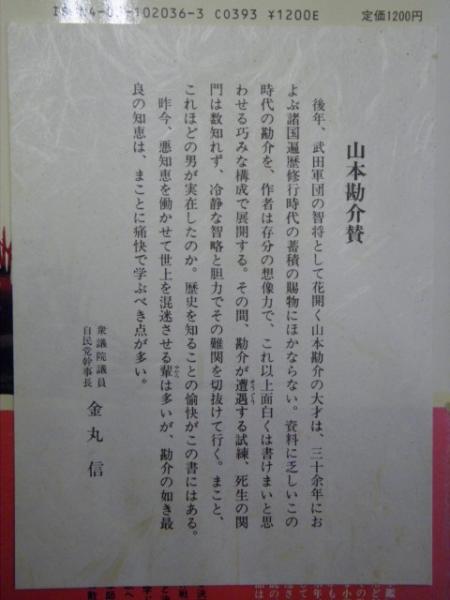 102036-3 C0393 ¥1200E
定価1200円
山本勘介賛
後年、武田軍団の智将として花開く山本勘介の大才は、三十余年にお
よぶ諸国遍歴修行時代の蓄積の賜物にほかならない。資料に乏しいこの
時代の勘介を、作者は存分の想像力で、これ以上面白くは書けまいと思
わせる巧みな構成で展開する。その間、勘介が遭遇する試練、死生の関
門は数知れず、冷静な智略と胆力でその難関を切抜けて行く。まこと、
これほどの男が実在したのか。歴史を知ることの愉快がこの書にはある。
昨今、悪知恵を働かせて世上を混迷させる輩は多いが、勘介の如き最
良の知恵は、まことに痛快で学ぶべき点が多い。
衆議院議員
自民党幹事長
金丸信